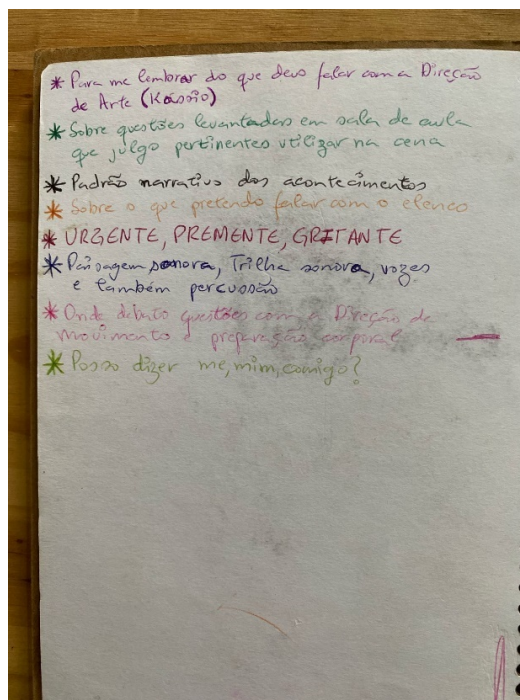 * Para me lembrar do que devo falar com a Direção
de Arte (Kássio)
* Sobre questões levantadas em sala de aula
que julgo pertinentes utilizar na cena
* Padrão narrativo dos acontecimentos
* Sobre o que pretendo falar com o elenco
* URGENTE, PREMENTE, GRITANTE
* Paisagem sonora, Trilha sonora, vozes
e também percussão
* Onde debato questões com a Direção de
movimento e preparação corporal
* Posso dizer me, mim, comigo?